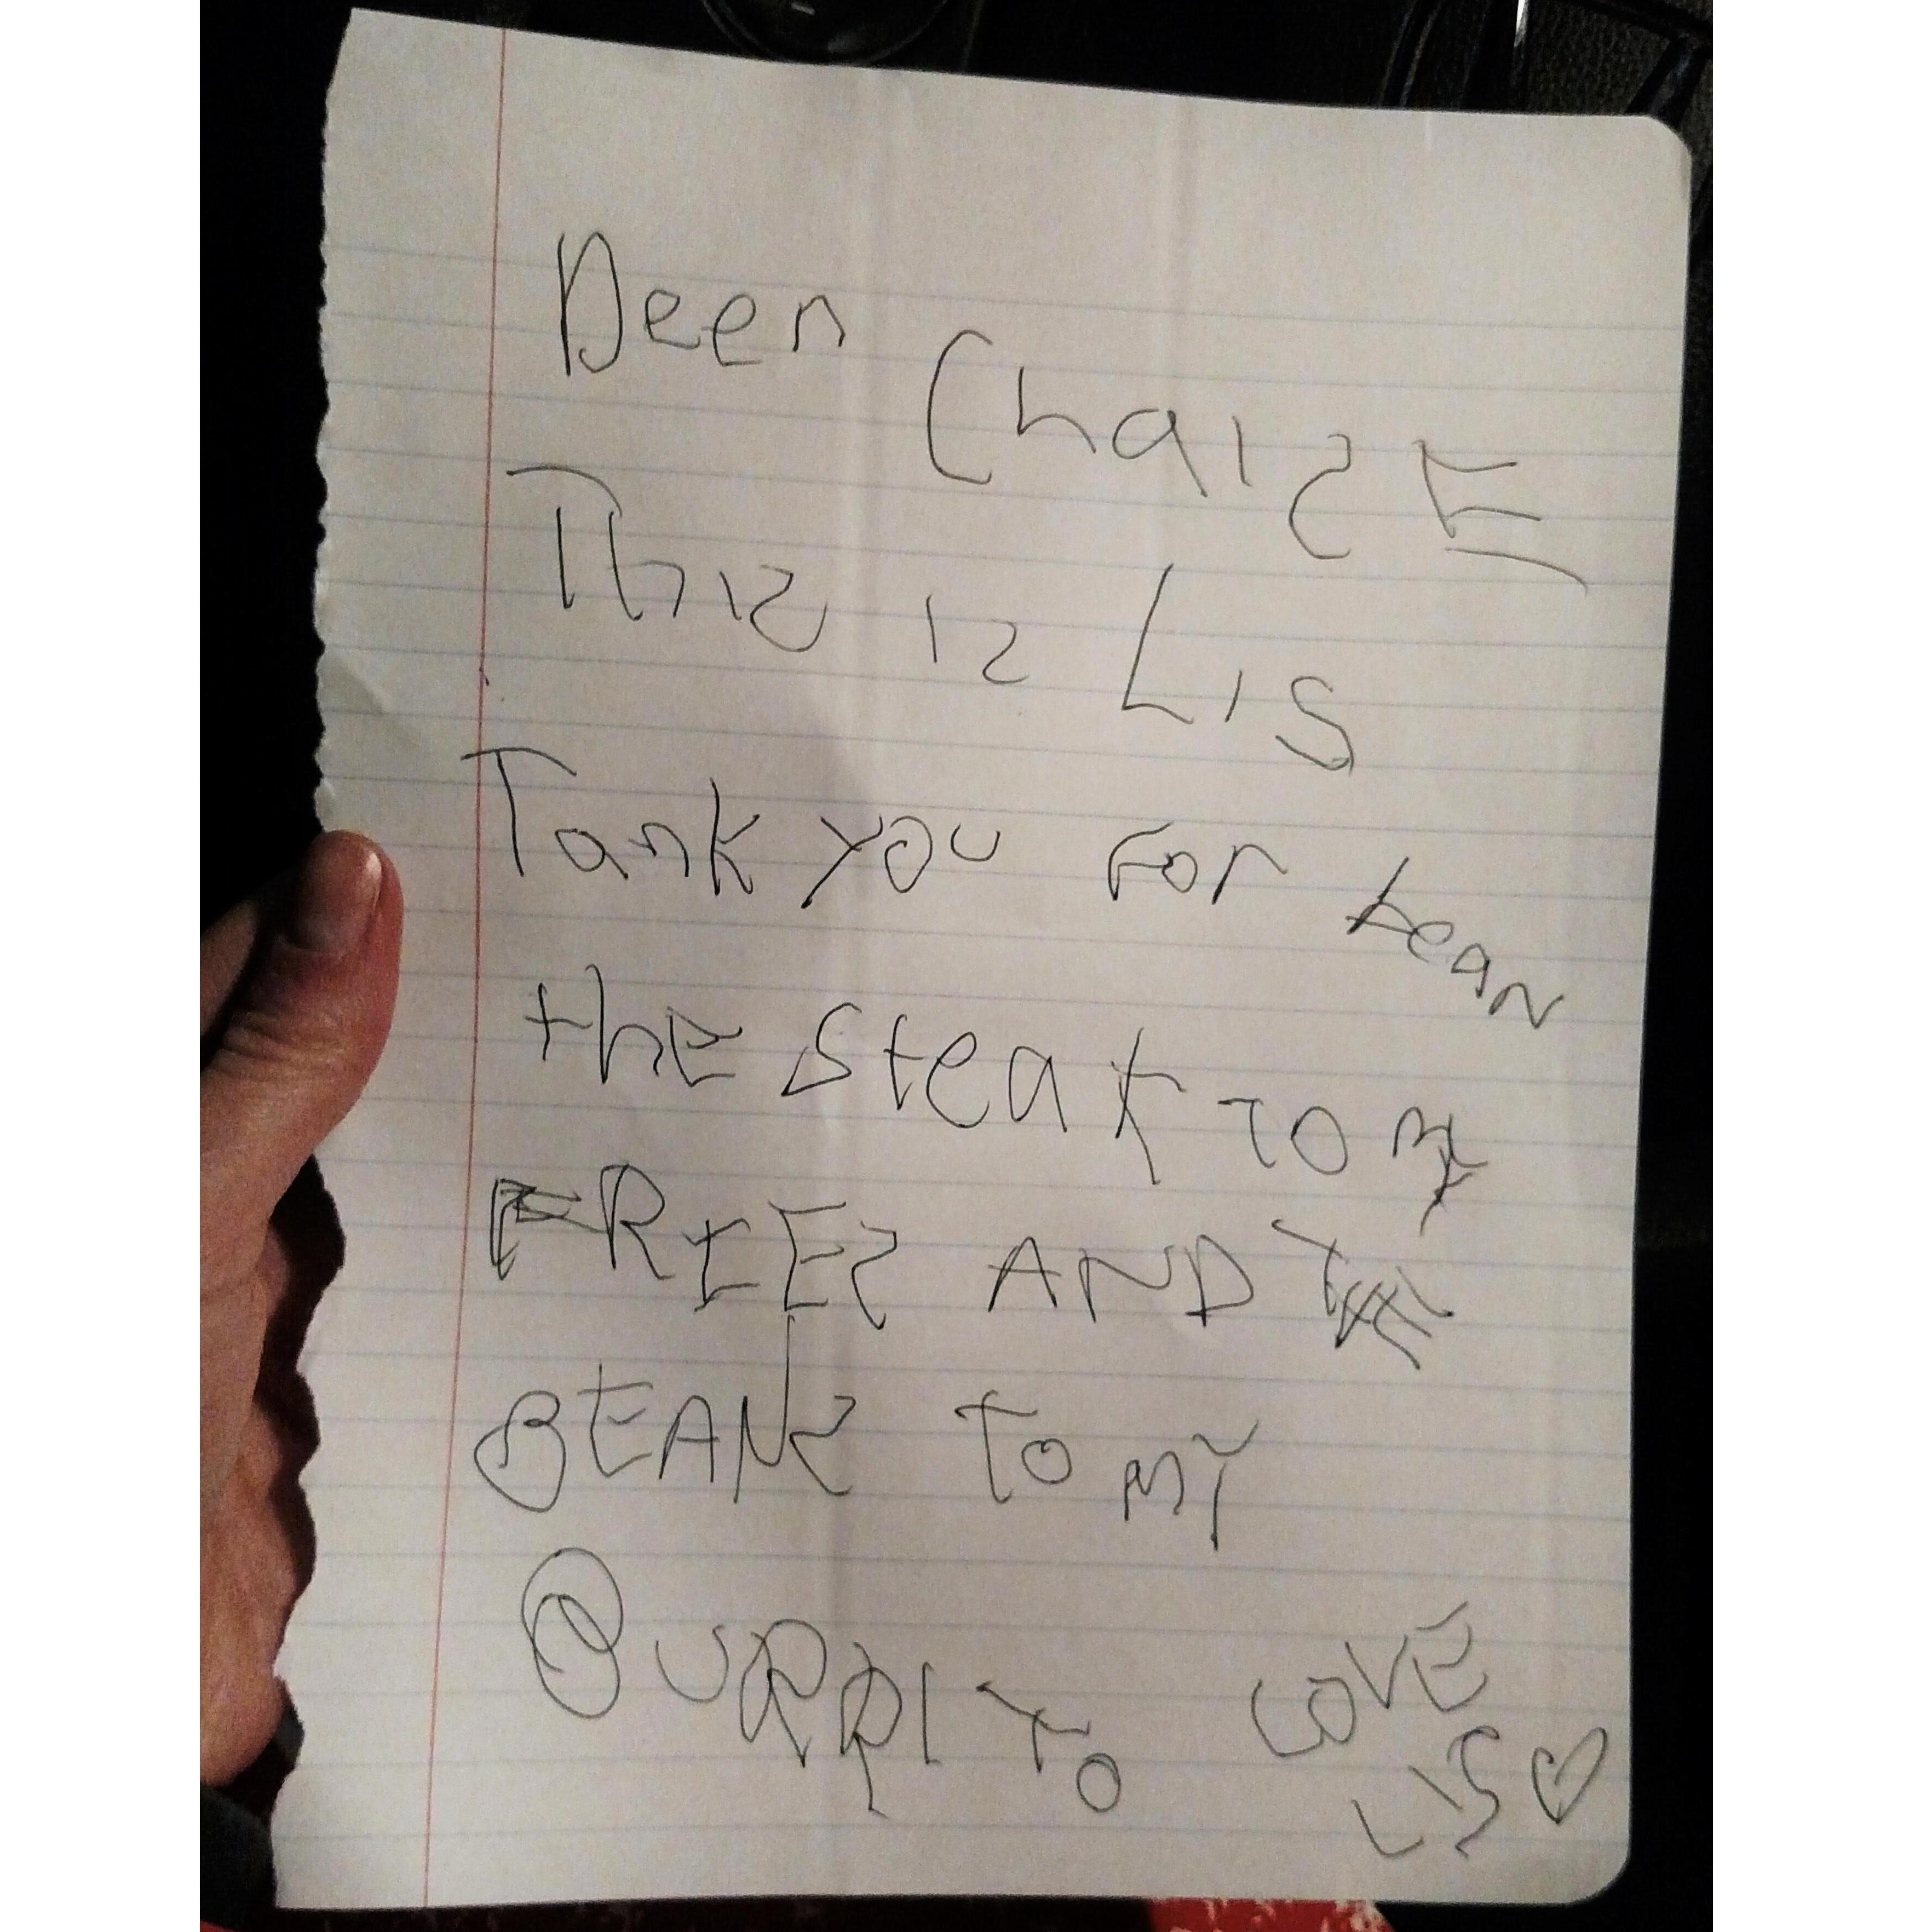 Deer ChaisE
This is Lis
Tank you For bean
thE steak TO my
FRIES AND THE
BEANS To my
BURRITO LOVE
LIS ♡